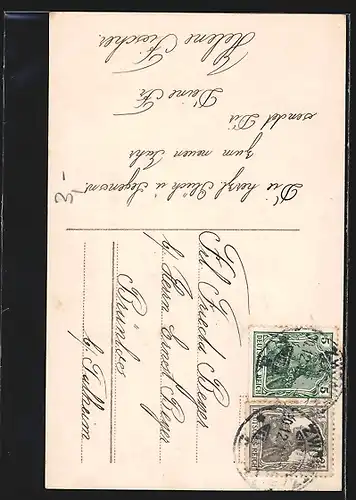 Die herzl. Glück u. Segensw.
zum neuen Jahr
sendet Dir
Deine Fr
Helene Fischer.
3,-
Frl. Frieda Beyer
b/ Herrn Ernst Beyer
Brünlos
b/ Thalheim
DEUTSCHES REICH
5 5